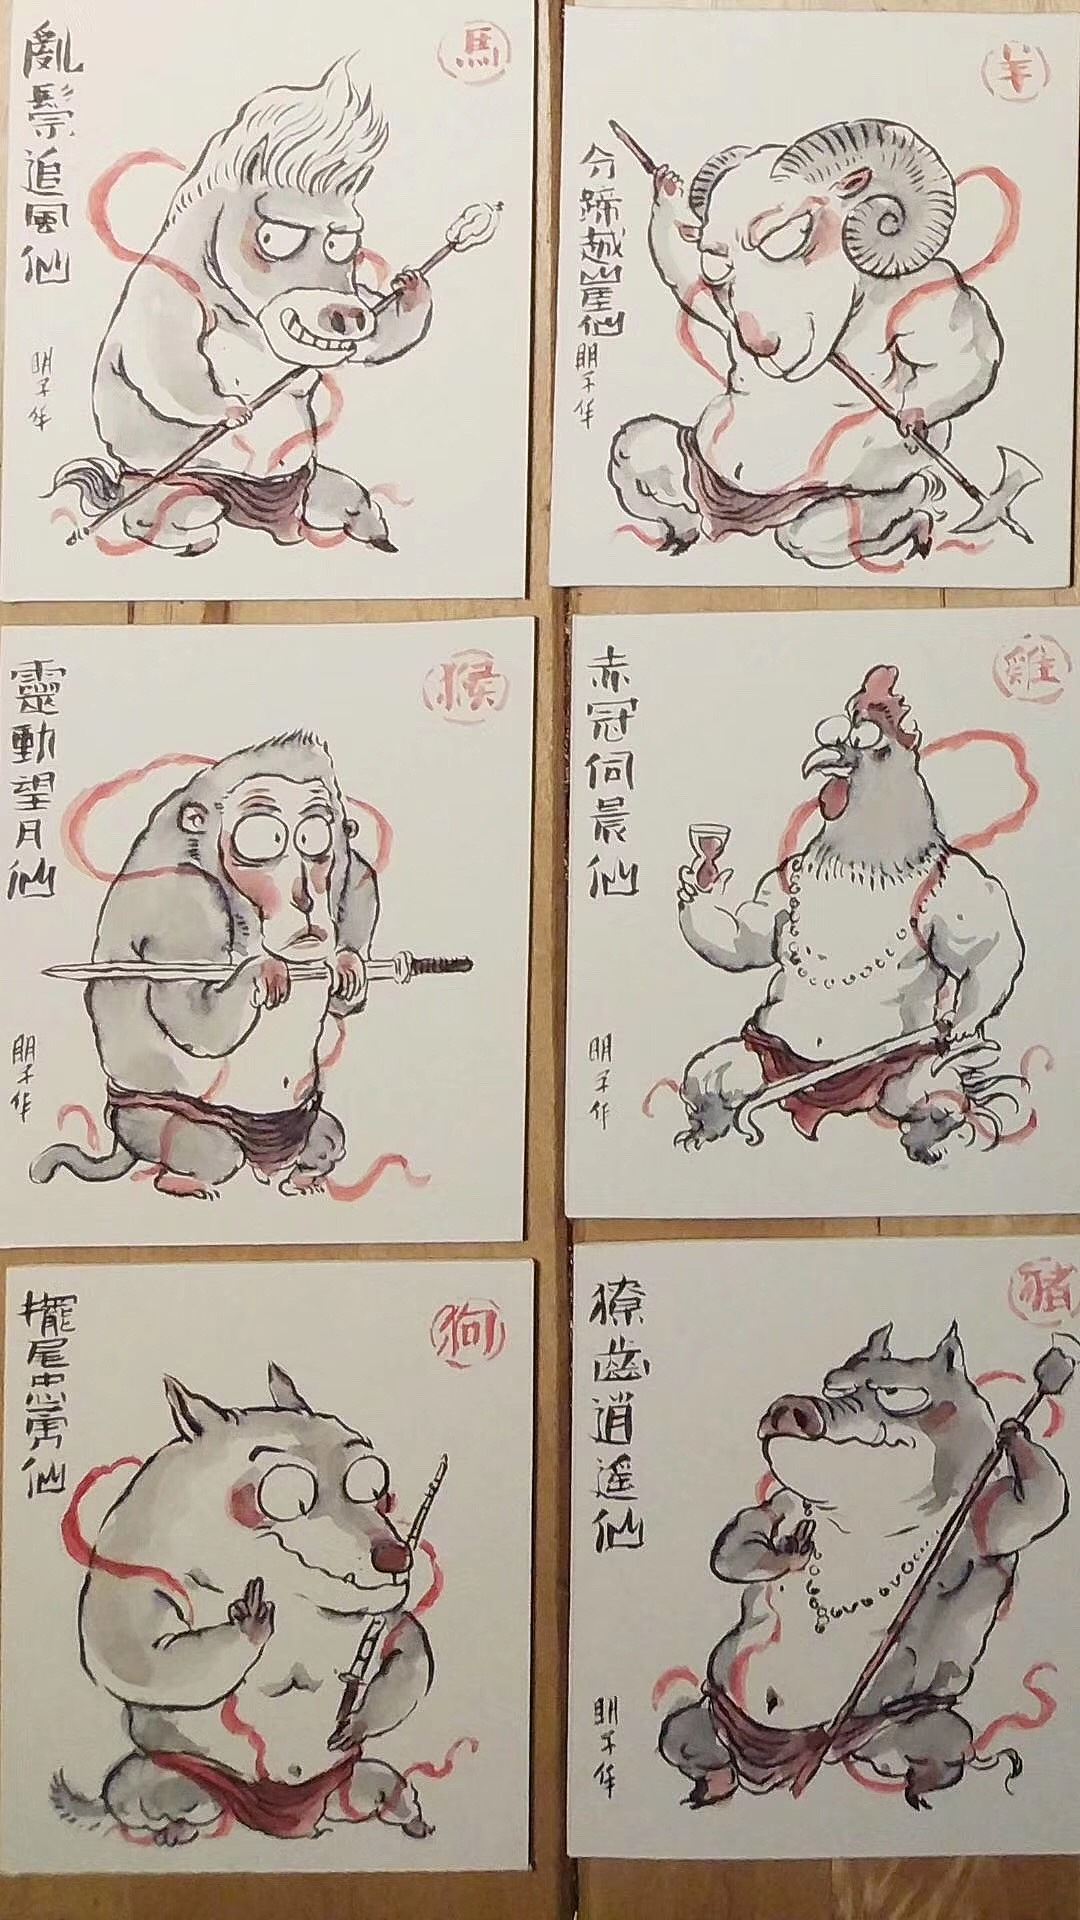 亂鬃追風仙
馬
明子作
分蹄越崖仙
羊
明子作
靈動望月仙
猴
明子作
赤冠伺晨仙
雞
明子作
擺尾忠勇仙
狗
獠齒逍遥仙
豬
明子作